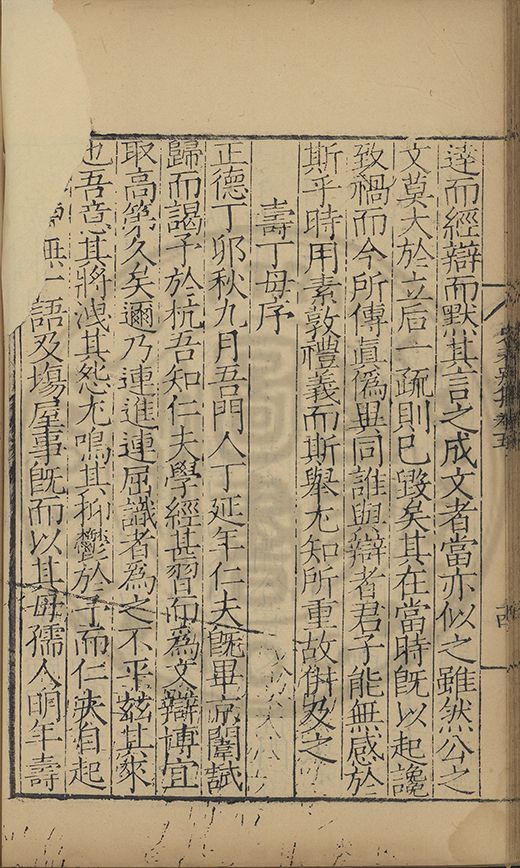 逹而經辯而默其言之成文者當亦似之雖然公之
文莫大於立后一疏則巳毀矣其在當時旣以起讒
致禍而今所傳眞僞異同誰與辯者君子能無感於
斯乎時用素敦禮義而斯舉尤知所重故倂及之
壽丁母序
正德丁卯秋九月吾門人丁延年仁夫旣畢京闈試
歸而謁予於杭吾知仁夫學經甚習而爲文辯博宜
取高第久矣邇乃連進連屈識者為之不平兹其來
也吾意其將洩其怨尤鳴其抑鬱於予而仁夫自起
無一語及塲屋事旣而以其母孺人明年壽